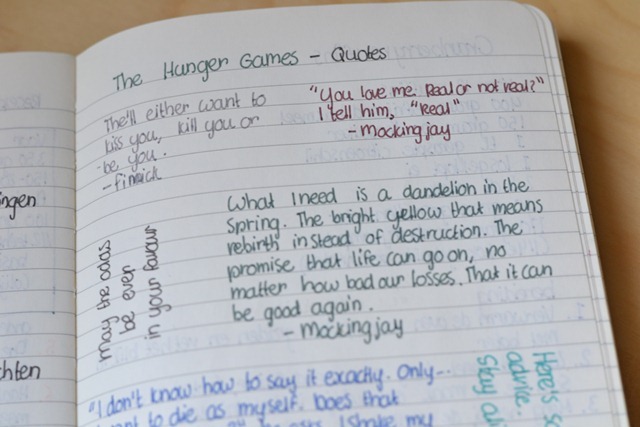 The Hunger Games - Quotes
The'll either want to
kiss you, kill you or
be you.
- finnick
"You love me. Real or not real?"
I tell him, "Real"
- Mockingjay
What I need is a dandelion in the
Spring. The bright yellow that means
rebirth instead of destruction. The
promise that life can go on, no
matter how bad our losses. That it can
be good again.
- Mockingjay
may the odds
be even
in your favour
"I don't know how to say it exactly. Only--
to die as myself. Does that
I shake my
Here's
advise.
Stay
ingen
chten